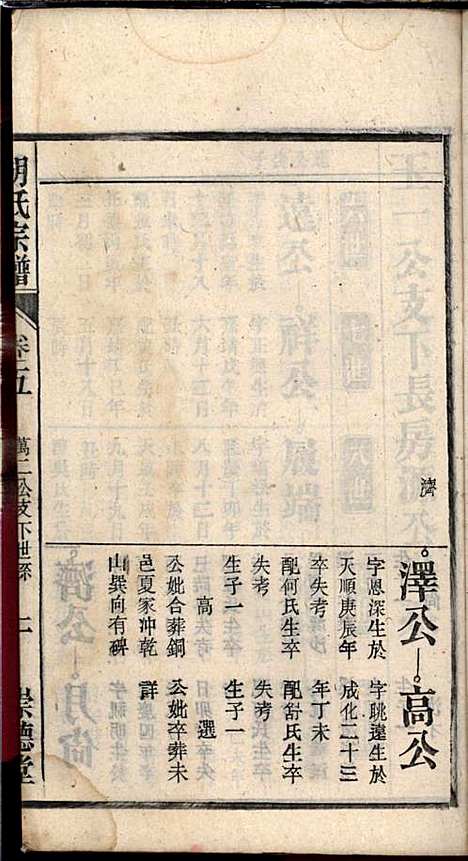 濟
澤公
字恩深生於
天順庚辰年
卒失考
配何氏生卒
失考
生子一
高
公妣合葬銅
邑夏家沖乾
山巽向有碑
高公
字眺遠生於
成化二十三
年丁未
配舒氏生卒
失考
生子一
選
公妣卒葬未
詳
胡氏宗譜
卷之五
萬二公支下世系
崇德堂